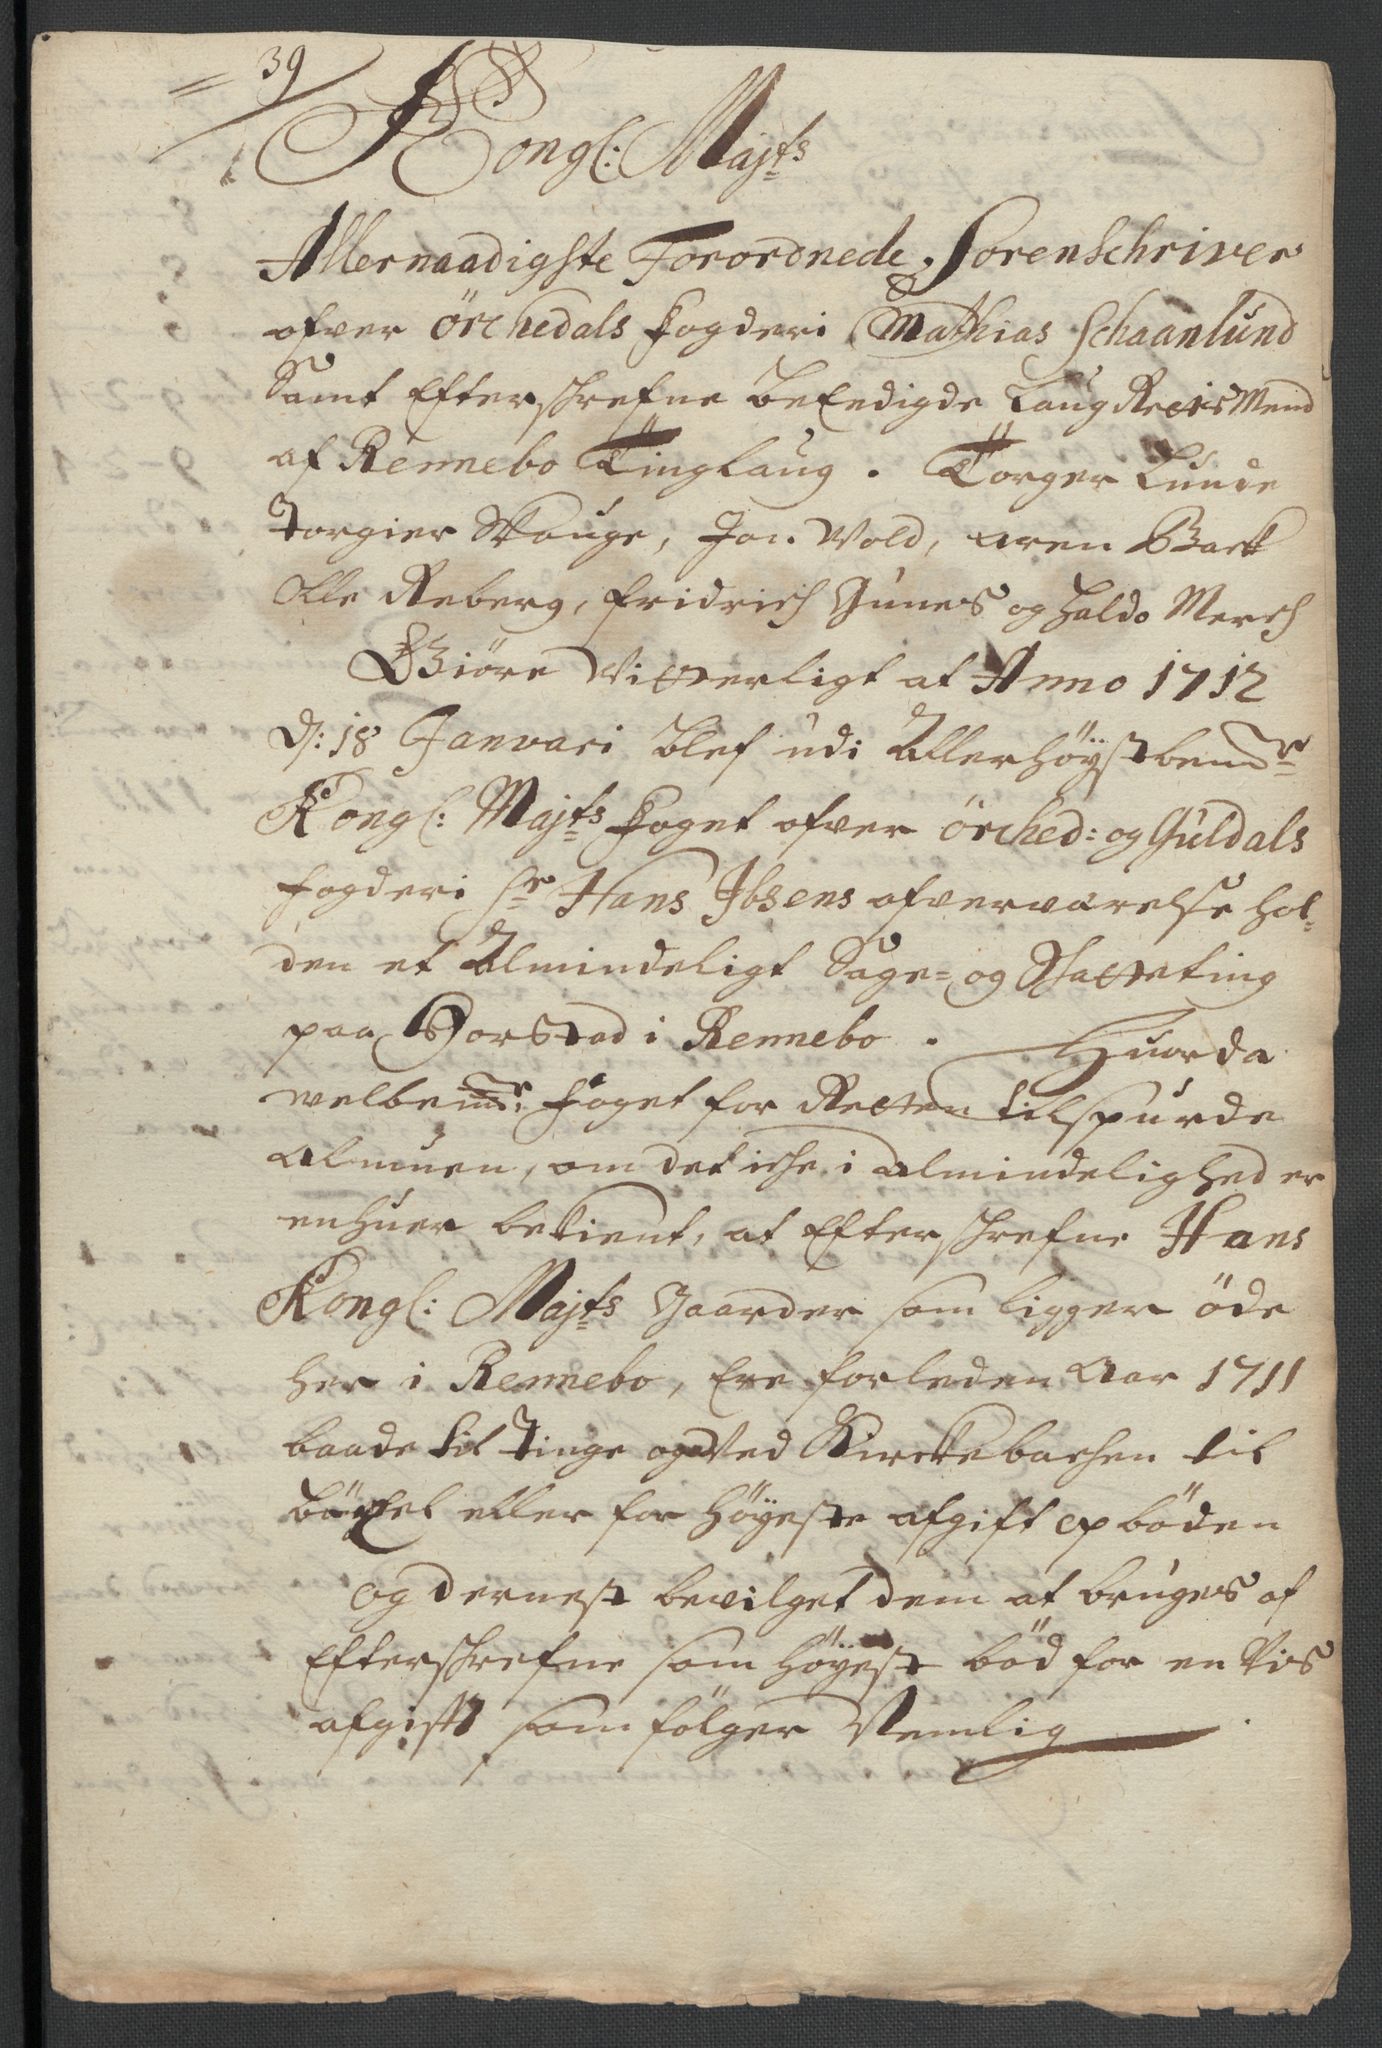 39
Kongl: Maj:ts
Allernaadigste Forordnede Sorenschriver
ofver örchedals fogderi Mathias Schaanlund
Samt Efterschrefne beEedigde LaugRettisMend
af Rennebo Tinglaug. Torger Lunde
Torgier Schouge, Jon Vold, aren Back
Olle Reberg, fridrich Gunes og Haldo Merch
Giöre Vitterligt at Anno 1712
d: 18 Janvari blef udi Allerhöÿstbemte
Kongl: Maj:ts foget ofver örched: og Guldals
fogderi Sr Hans Ibsens ofververelse hol-
den et Almindeligt Sage- og Schatteting
paa Horstad i Rennebo. Huorda
velbemte foget for Retten tilspurde
Almuen, om det iche i Almindelighed er
enhuer bekient, at Efterschrefne Hans
Kongl: Maj:ts Gaarder som ligger öde
her i Rennebo, Ere forleden Aar 1711
baade til Tinge og Ved Kirckebachen til
böxel eller for höÿeste afgift opböden
og dernest bevilget dem at bruges af
Efterschrefne som höÿest böd for en Vis
afgift som fölger Nemlig